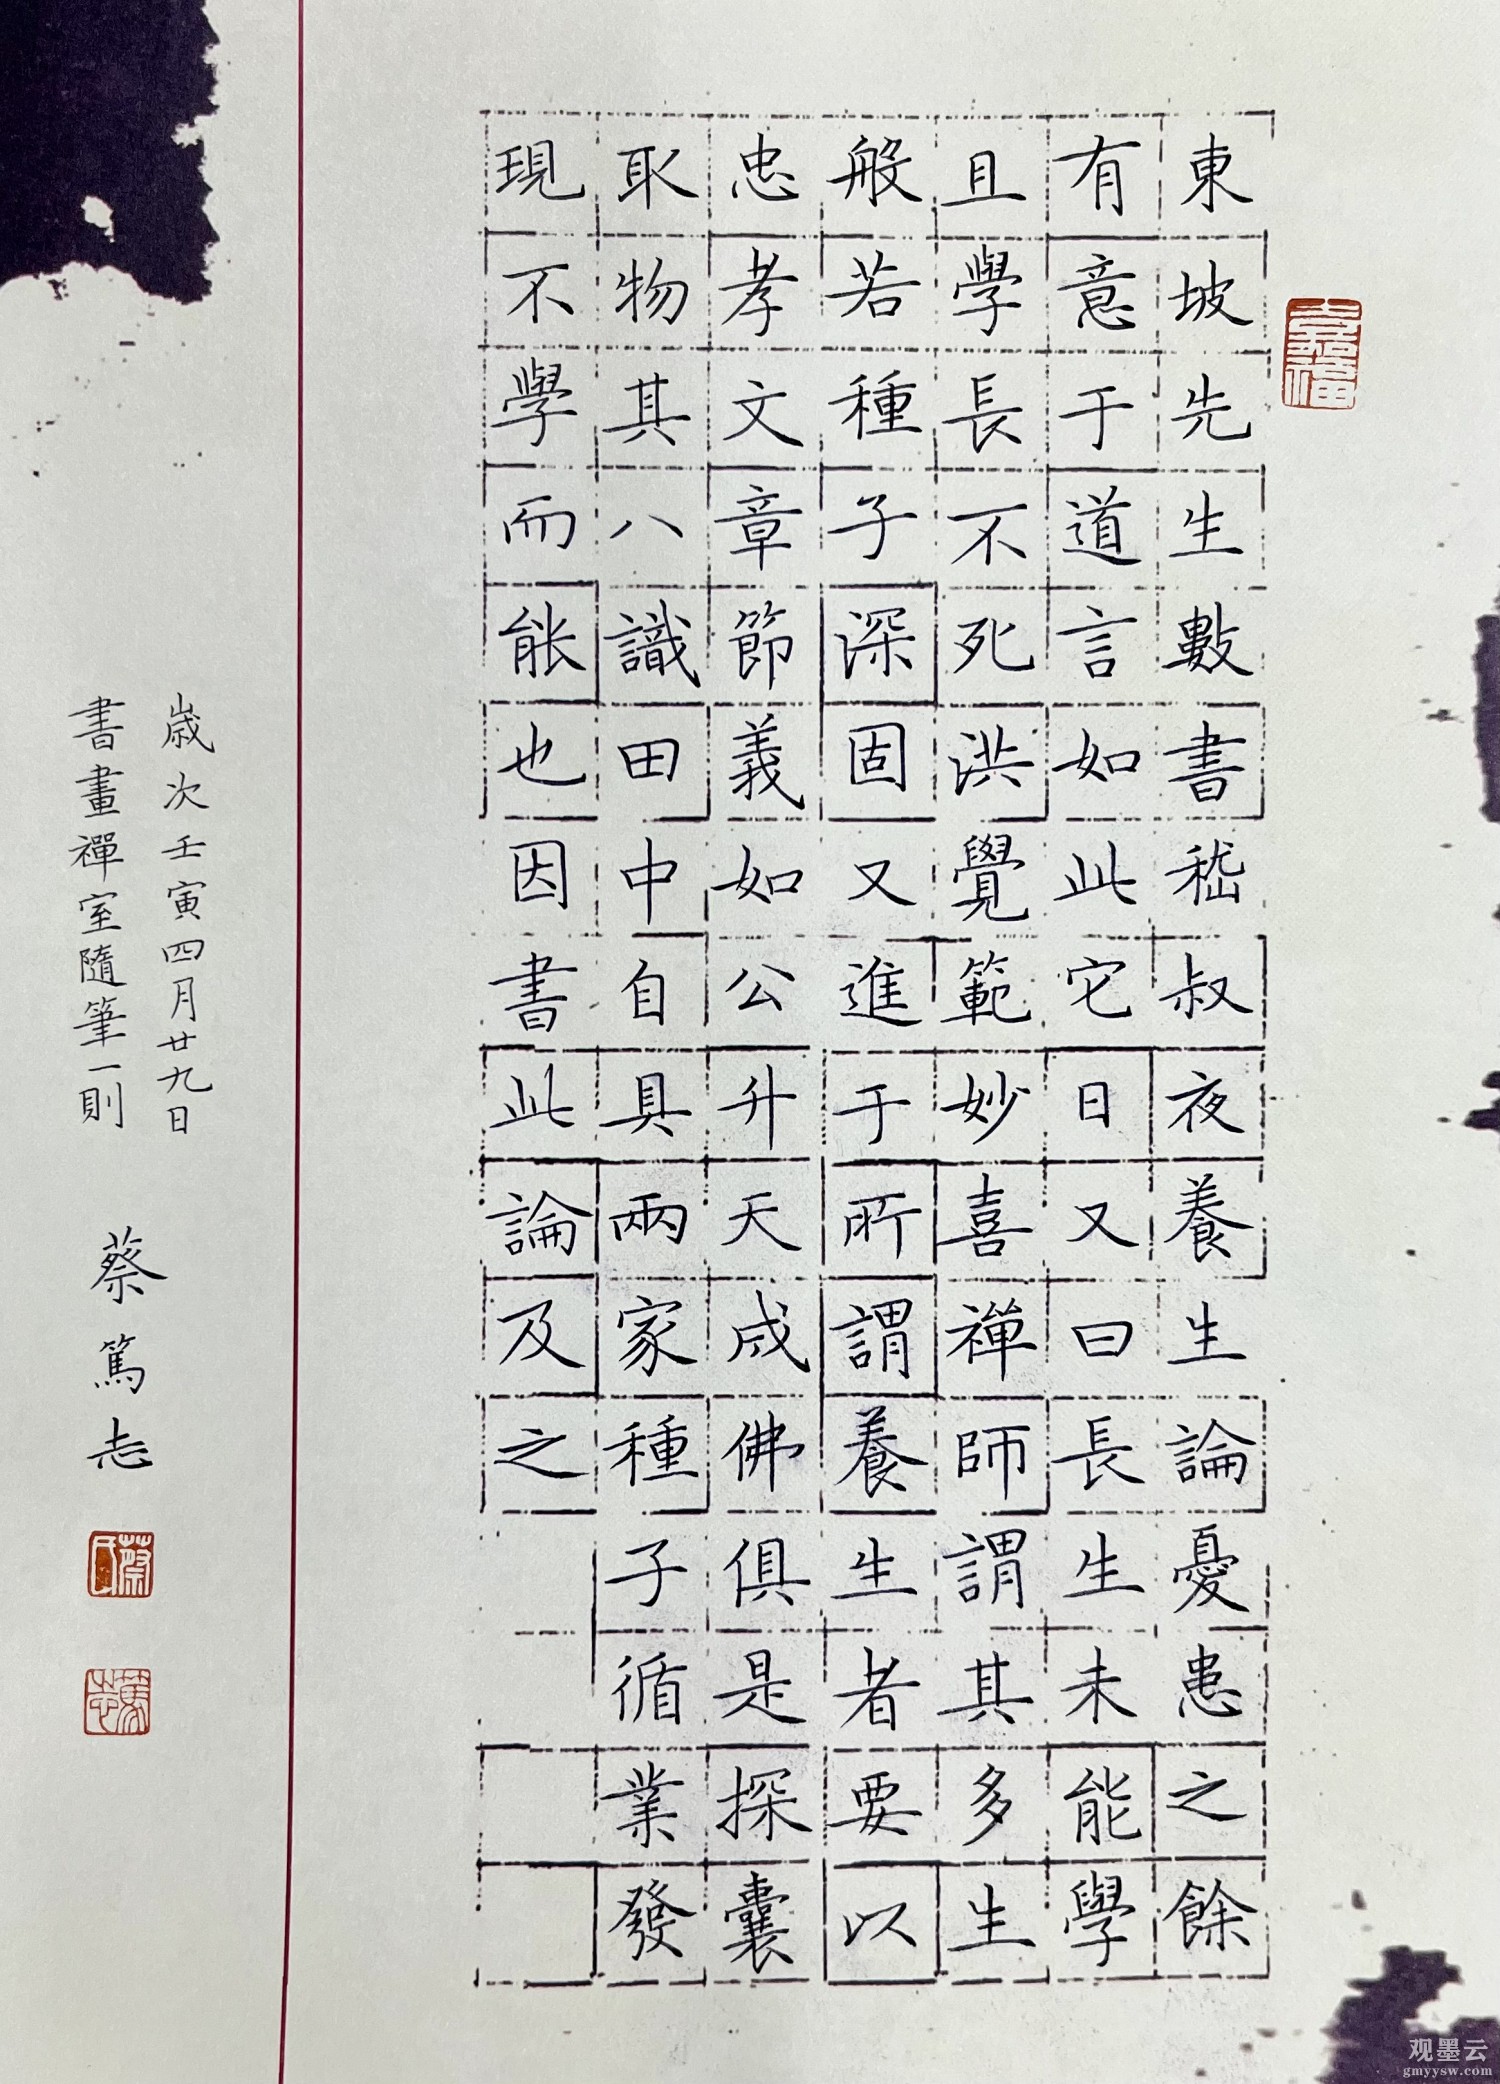 東坡先生數書嵇叔夜養生論憂患之餘
有意于道言如此它日又曰長生未能學
且學長不死洪覺範妙喜禪師謂其多生
般若種子深固又進于所謂養生者要以
忠孝文章節義如公升天成佛俱是探囊
取物其八識田中自具兩家種子循業發
現不學而能也因書此論及之
歲次壬寅四月廿九日
書畫禪室隨筆一則
蔡篤志
蔡氏
篤志
观墨云
gmyysw.com